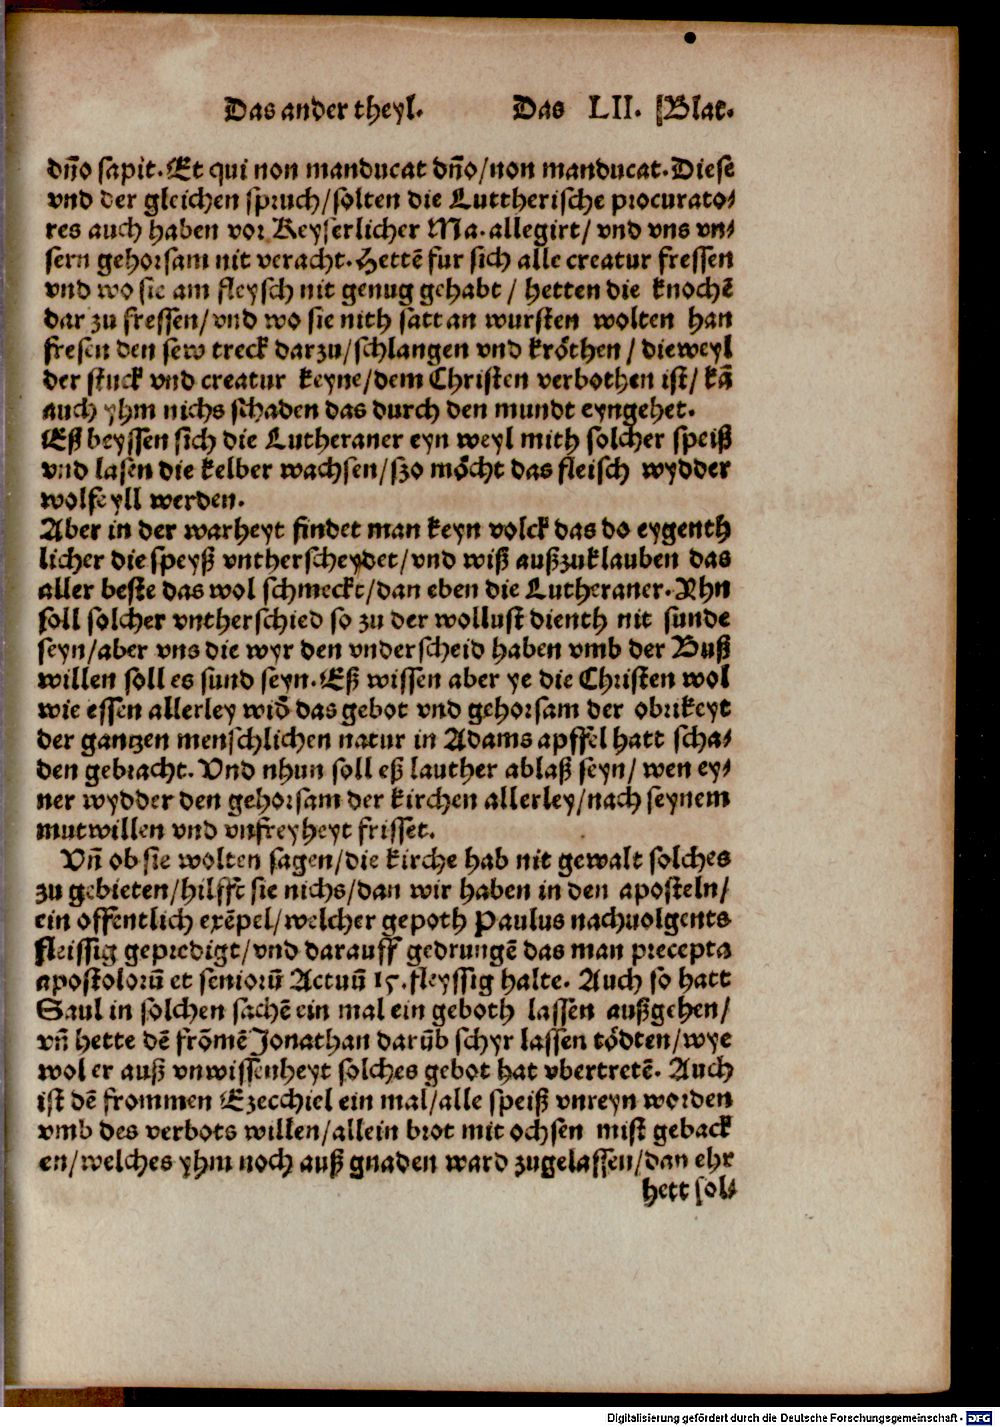 Das ander theyl. Das LII. Blat.
dn̄o sapit. Et qui non manducat dn̄o/non manducat. Diese
vnd der gleichen spruch/solten die Luttherische procurato⸗
res auch haben vor Keyserlicher Ma. allegirt/ vnd vns vn⸗
sern gehorsam nit veracht. Hettē fur sich alle creatur fressen
vnd wo sie am fleysch nit genug gehabt / hetten die knochē
dar zu fressen/vnd wo sie nith satt an wursten wolten han
fresen den sew treck darzu/schlangen vnd kröthen / dieweyl
der stuck vnd creatur keyne/dem Christen verbothen ist/ kā
auch yhm nichs schaden das durch den mundt eyngehet.
Eß beyssen sich die Lutheraner eyn weyl mith solcher speiß
vnd lasen die kelber wachsen/szo möcht das fleisch wydder
wolfeyll werden.
Aber in der warheyt findet man keyn volck das do eygenth
licher die speyß vntherscheydet/vnd wiß außzuklauben das
aller beste das wol schmeckt/dan eben die Lutheraner. Yhn
soll solcher vntherschied so zu der wollust dienth nit sunde
seyn/aber vns die wyr den vnderscheid haben vmb der Buß
willen soll es sund seyn. Eß wissen aber ye die Christen wol
wie essen allerley wid̄ das gebot vnd gehorsam der obrikeyt
der gantzen menschlichen natur in Adams apffel hatt scha⸗
den gebracht. Vnd nhun soll eß lauther ablaß seyn/ wen ey⸗
ner wydder den gehorsam der kirchen allerley/nach seynem
mutwillen vnd vnfreyheyt frisset.
Vn̄ ob sie wolten sagen/die kirche hab nit gewalt solches
zu gebieten/hilfft sie nichs/dan wir haben in den aposteln/
ein offentlich exēpel/welcher gepoth Paulus nachuolgents
fleissig gepredigt/vnd darauff gedrungē das man precepta
apostolorū et seniorū Actuū 15. fleyssig halte. Auch so hatt
Saul in solchen sachē ein mal ein geboth lassen außgehen/
vn̄ hette dē frōmē Jonathan darūb schyr lassen tödten/wye
wol er auß vnwissenheyt solches gebot hat vbertretē. Auch
ist dē frommen Ezecchiel ein mal/alle speiß vnreyn worden
vmb des verbots willen/allein brot mit ochsen mist geback
en/welches yhm noch auß gnaden ward zugelassen/dan ehr
hett sol⸗
Digitalisierung gefördert durch die Deutsche Forschungsgemeinschaft - DFG